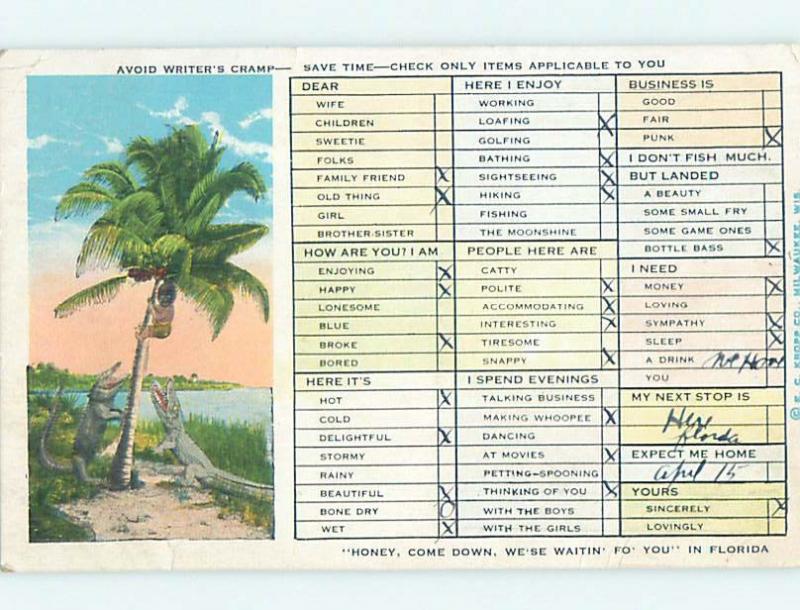 AVOID WRITER'S CRAMP— SAVE TIME—CHECK ONLY ITEMS APPLICABLE TO YOU
DEAR
WIFE
CHILDREN
SWEETIE
FOLKS
FAMILY FRIEND X
OLD THING X
GIRL
BROTHER-SISTER
HOW ARE YOU? I AM
ENJOYING X
HAPPY X
LONESOME
BLUE
BROKE X
BORED
HERE IT'S
HOT X
COLD
DELIGHTFUL X
STORMY
RAINY
BEAUTIFUL X
BONE DRY O
WET X
HERE I ENJOY
WORKING
LOAFING X
GOLFING
BATHING X
SIGHTSEEING X
HIKING X
FISHING
THE MOONSHINE
PEOPLE HERE ARE
CATTY
POLITE X
ACCOMMODATING X
INTERESTING X
TIRESOME
SNAPPY X
I SPEND EVENINGS
TALKING BUSINESS
MAKING WHOOPEE X
DANCING
AT MOVIES X
PETTING-SPOONING
THINKING OF YOU X
WITH THE BOYS
WITH THE GIRLS
BUSINESS IS
GOOD
FAIR
PUNK X
I DON'T FISH MUCH.
BUT LANDED
A BEAUTY
SOME SMALL FRY
SOME GAME ONES
BOTTLE BASS X
I NEED
MONEY X
LOVING
SYMPATHY X
SLEEP X
A DRINK
YOU
MY NEXT STOP IS
Here
florda
EXPECT ME HOME
april 15
YOURS
SINCERELY X
LOVINGLY
"HONEY, COME DOWN, WE'SE WAITIN' FO' YOU" IN FLORIDA
© E. C. KROPP CO., MILWAUKEE, WIS.